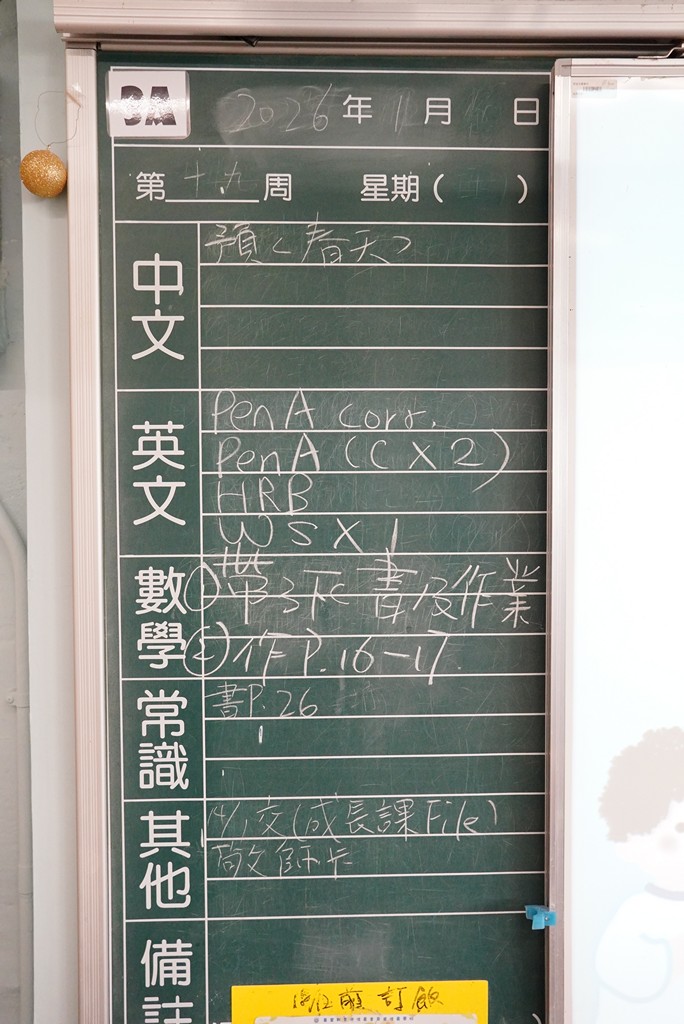 3A
2026年1月 日
第十九周 星期( )
中文
預<春天>
英文
Pen A corr.
Pen A (C X 2)
HRB
WS X 1
數學
①帶3下書及作業
②作P.16-17.
常識
書P.26
其他
14/1交(成長課File)
敬師卡
備註
訂飯